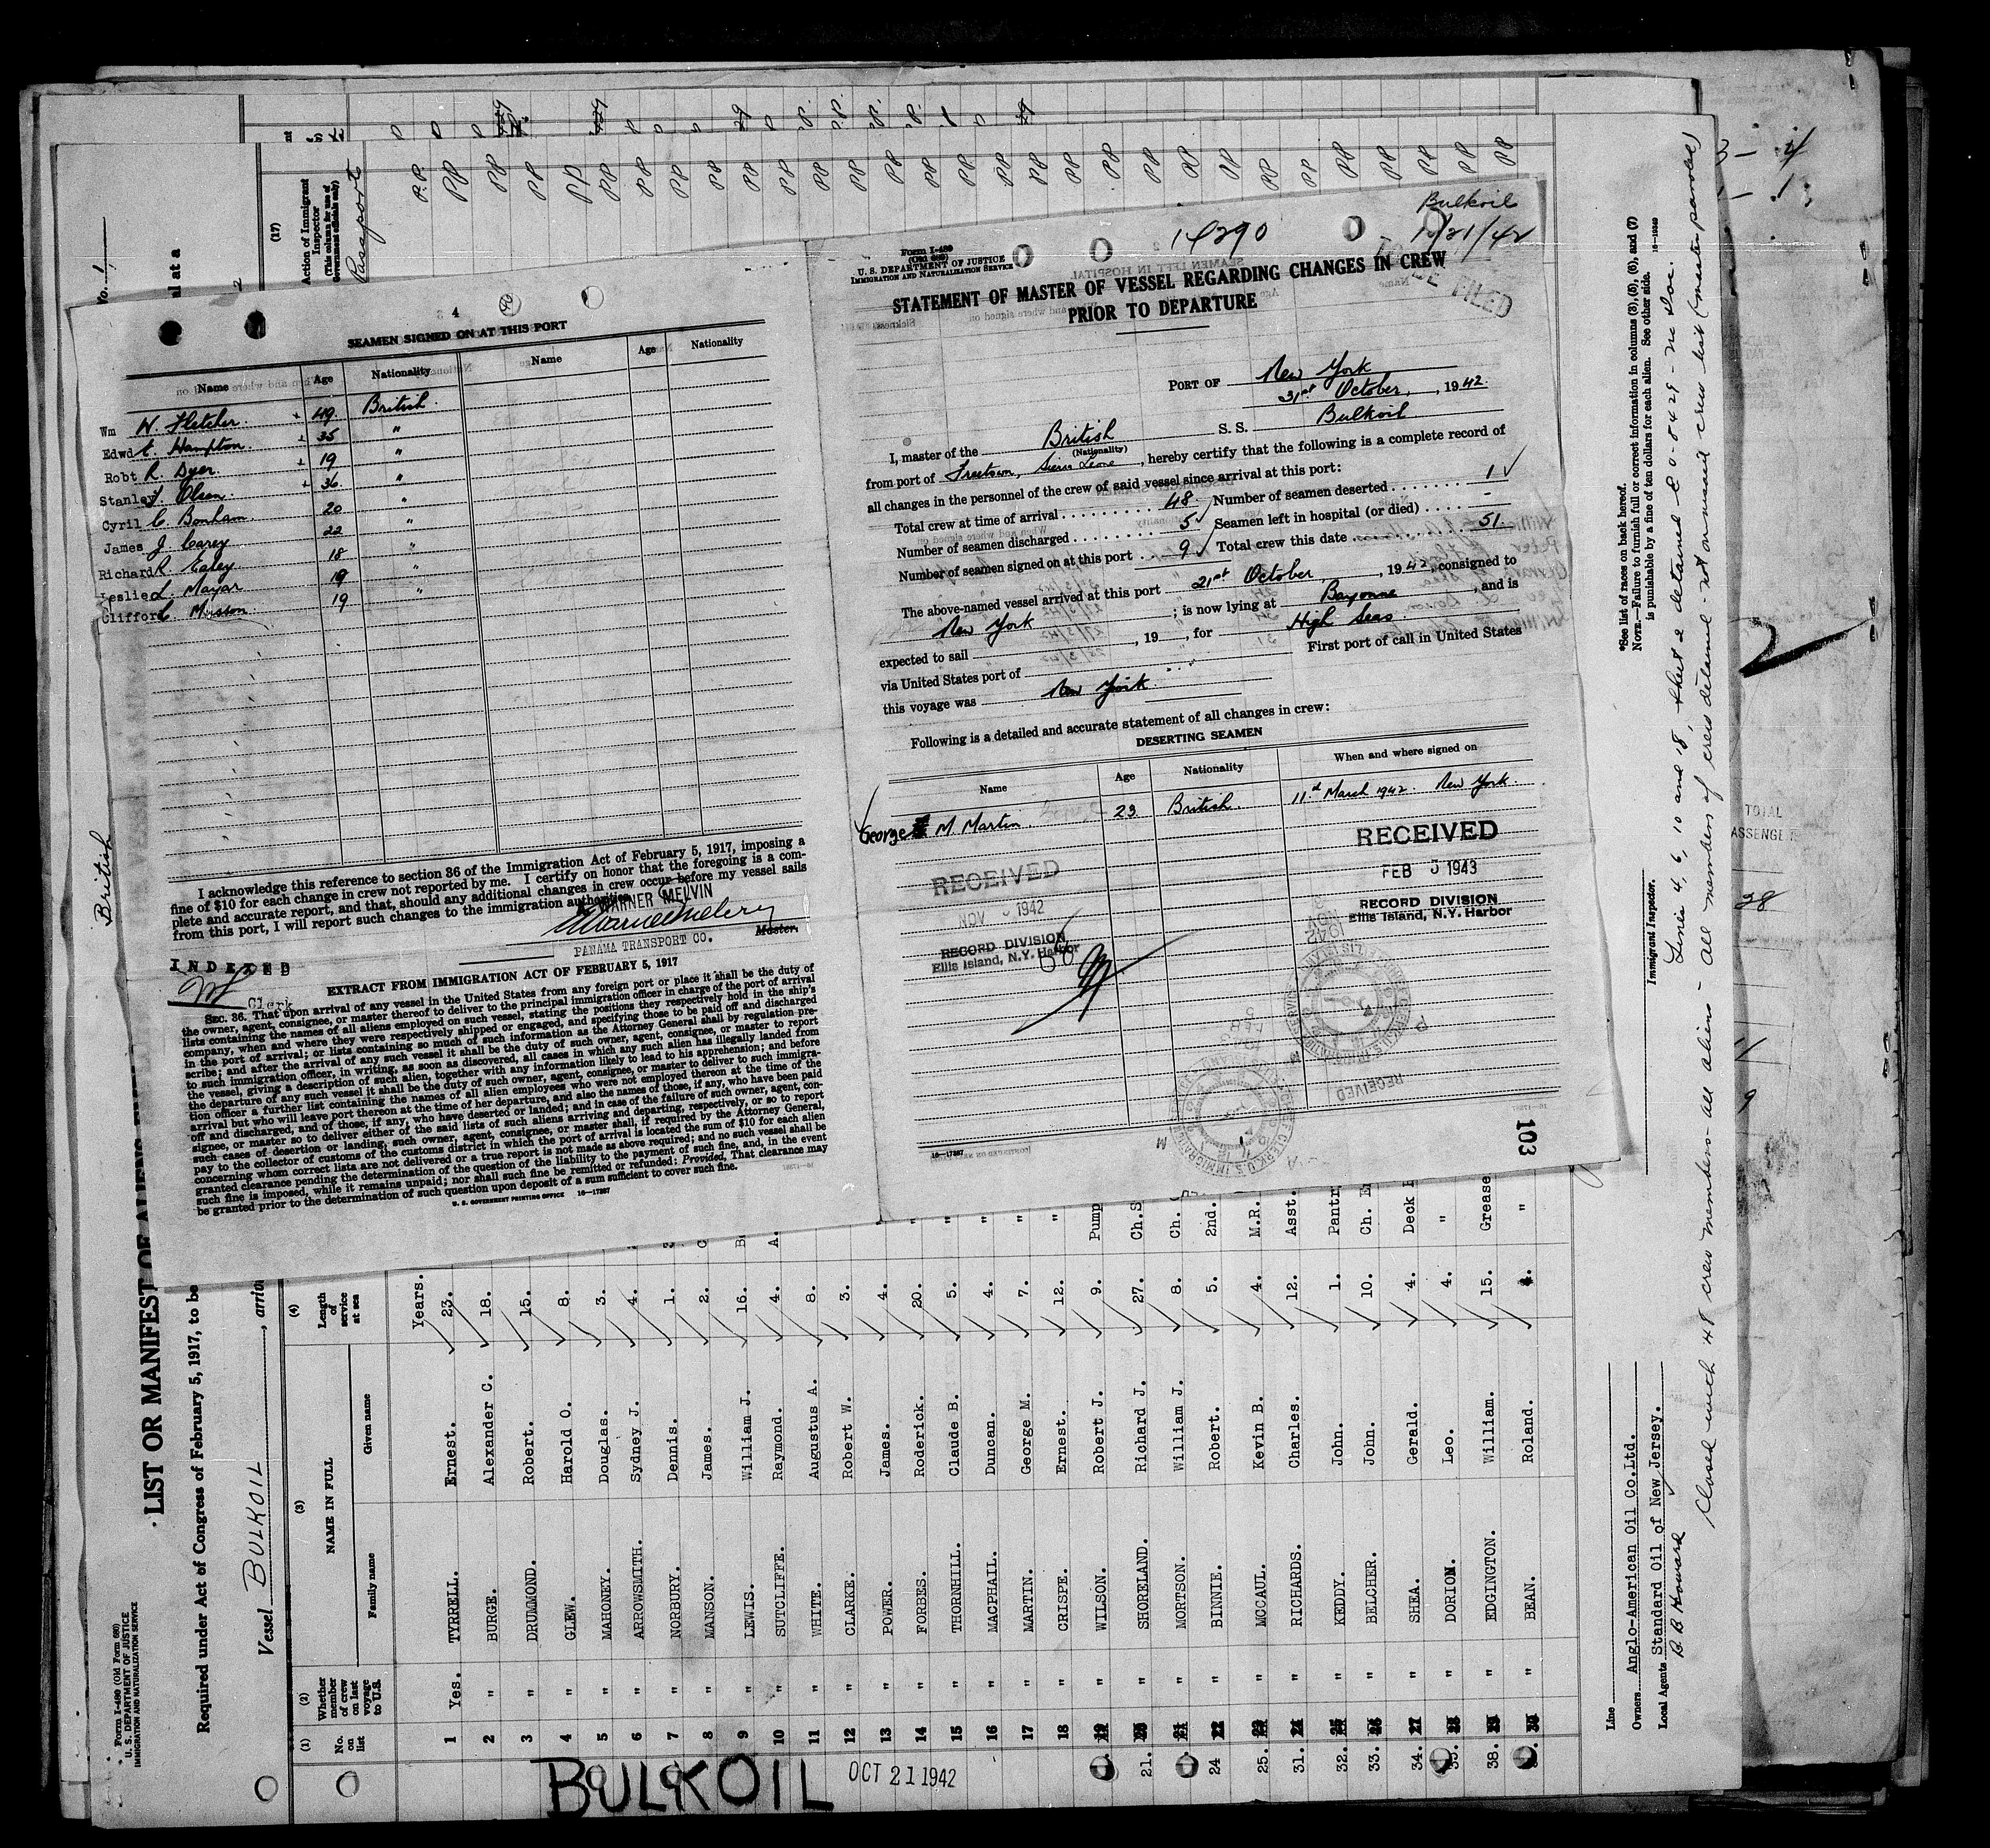 4
SEAMEN SIGNED ON AT THIS PORT
Name Age Nationality Name Age Nationality
Wm W. Fletcher. 49. British.
Edwd E. Hampton. 35 "
Robt R. Dyer. 19 "
Stanley Olsen. 36. "
Cyril C. Bonham. 20 "
James J. Carey. 22 "
Richard R. Earey. 18 "
Leslie L. Mayar 19 "
Clifford C. Musson. 19 "
I acknowledge this reference to section 36 of the Immigration Act of February 5, 1917, imposing a
fine of $10 for each change in crew not reported by me. I certify on honor that the foregoing is a com-
plete and accurate report, and that, should any additional changes in crew occur before my vessel sails
from this port, I will report such changes to the immigration authorities.
WARNER MELVIN
Master.
PANAMA TRANSPORT CO.
INDEXED
Clerk
EXTRACT FROM IMMIGRATION ACT OF FEBRUARY 5, 1917
SEC. 36. That upon arrival of any vessel in the United States from any foreign port or place it shall be the duty of
the owner, agent, consignee, or master thereof to deliver to the principal immigration officer in charge of the port of arrival
lists containing the names of all aliens employed on such vessel, stating the positions they respectively hold in the ship's
company, when and where they were respectively shipped or engaged, and specifying those to be paid off and discharged
in the port of arrival; or lists containing so much of such information as the Attorney General shall by regulation pre-
scribe; and after the arrival of any such vessel it shall be the duty of such owner, agent, consignee, or master to report
to such immigration officer, in writing, as soon as discovered, all cases in which any such alien has illegally landed from
the vessel, giving a description of such alien, together with any information likely to lead to his apprehension; and before
the departure of any such vessel it shall be the duty of such owner, agent, consignee, or master to deliver to such immigra-
tion officer a further list containing the names of all alien employees who were not employed thereon at the time of the
arrival but who will leave port thereon at the time of her departure, and also the names of those, if any, who have been paid
off and discharged, and of those, if any, who have deserted or landed; and in case of the failure of such owner, agent, con-
signee, or master so to deliver either of the said lists of such aliens arriving and departing, respectively, or so to report
such cases of desertion or landing, such owner, agent, consignee, or master, shall, if required by the Attorney General,
pay to the collector of customs of the customs district in which the port of arrival is located the sum of $10 for each alien
concerning whom correct lists are not delivered or a true report is not made as above required; and no such vessel shall be
granted clearance pending the determination of the question of the liability to the payment of such fine, and, in the event
such fine is imposed, while it remains unpaid; nor shall such fine be remitted or refunded; Provided, That clearance may
be granted prior to the determination of such question upon deposit of a sum sufficient to cover such fine.
U. S. GOVERNMENT PRINTING OFFICE 16—17287
Form I-489
(Old 689)
U. S. DEPARTMENT OF JUSTICE
IMMIGRATION AND NATURALIZATION SERVICE
14290
Bulkoil
10/21/42
TO BE FILED
STATEMENT OF MASTER OF VESSEL REGARDING CHANGES IN CREW
PRIOR TO DEPARTURE
PORT OF New York
31st October, , 1942.
I, master of the British S. S. Bulkoil
(Nationality)
from port of Freetown, Sierra Leone, hereby certify that the following is a complete record of
all changes in the personnel of the crew of said vessel since arrival at this port:
Total crew at time of arrival 48. Number of seamen deserted 1 ✓
Number of seamen discharged 5 ✓ Seamen left in hospital (or died) -
Number of seamen signed on at this port 9 ✓ Total crew this date 51.
The above-named vessel arrived at this port 21st October, 1942, consigned to
New York ; is now lying at Bayonne , and is
expected to sail , 19 , for High Seas.
via United States port of First port of call in United States
this voyage was New York
Following is a detailed and accurate statement of all changes in crew:
DESERTING SEAMEN
Name Age Nationality When and where signed on
George M. Martin. 23. British. 11th March 1942. New York.
RECEIVED
NOV 1942
RECORD DIVISION
Ellis Island, N.Y. Harbor
RECEIVED
FEB 5 1943
RECORD DIVISION
Ellis Island, N.Y. Harbor
16—17287
103
Form I-480 (Old Form 680)
U. S. DEPARTMENT OF JUSTICE
IMMIGRATION AND NATURALIZATION SERVICE
LIST OR MANIFEST OF ALIENS
Required under Act of Congress of February 5, 1917, to be
Vessel BULKOIL , arri
British
(1) (2) (3) (4) (17)
No. on list
Whether member of crew on last voyage to U.S.
NAME IN FULL
Family name Given name
Length of service at sea
Action of Immigrant Inspector
(This column for use of Government officials only)
Passport
Years.
1 Yes. TYRRELL. Ernest. 23.
2 " BURGE. Alexander C. 18.
3 " DRUMMOND. Robert. 15.
4 " GLEW. Harold O. 8.
5 " MAHONEY. Douglas. 3.
6 " ARROWSMITH. Sydney J. 4.
7 " NORBURY. Dennis. 1.
8 " MANSON. James. 2.
9 " LEWIS. William J. 16.
10 " SUTCLIFFE. Raymond. 4.
11 " WHITE. Augustus A. 8.
12 " CLARKE. Robert W. 3.
13 " POWER. James. 4.
14 " FORBES. Roderick. 20.
15 " THORNHILL. Claude B. 5. "
16 " MACPHAIL. Duncan. 4. "
17 " MARTIN. George M. 7. "
18 " CRISPE. Ernest. 12. "
19 " WILSON. Robert J. 9. Pump
21. 20 " SHORELAND. Richard J. 27. Ch.S
21 " MORTSON. William J. 8. Ch.
24 22 " BINNIE. Robert. 5. 2nd.
25. 23 " MCCAUL. Kevin B. 4. M.R.
31. 24 " RICHARDS. Charles. 12. Asst.
32. 25 " KEDDY. John. 1. Pantr
33. 26 " BELCHER. John. 10. Ch. E
34. 27 " SHEA. Gerald. 4. Deck
35. 28 " DORION. Leo. 4. "
38. 29 " EDGINGTON. William. 15. Grease
30 " BEAN. Roland. 4. "
BULKOIL OCT 21 1942
Line
Owners Anglo-American Oil Co.Ltd.
Local Agents Standard Oil of New Jersey.
B B Howard
Immigrant Inspector.
*See list of races on back hereof.
NOTE.—Failure to furnish full or correct information in columns (3), (5), (6), and (7)
is punishable by a fine of ten dollars for each alien. See other side. 16—19249
Lines 4, 6, 10 and 18, sheet 2 detained - no doc.
Closed with 48 crew members - all aliens - All members of crew detained - not on usual crew list (master paroled)
TOTAL
PASSENGER
28
11
9